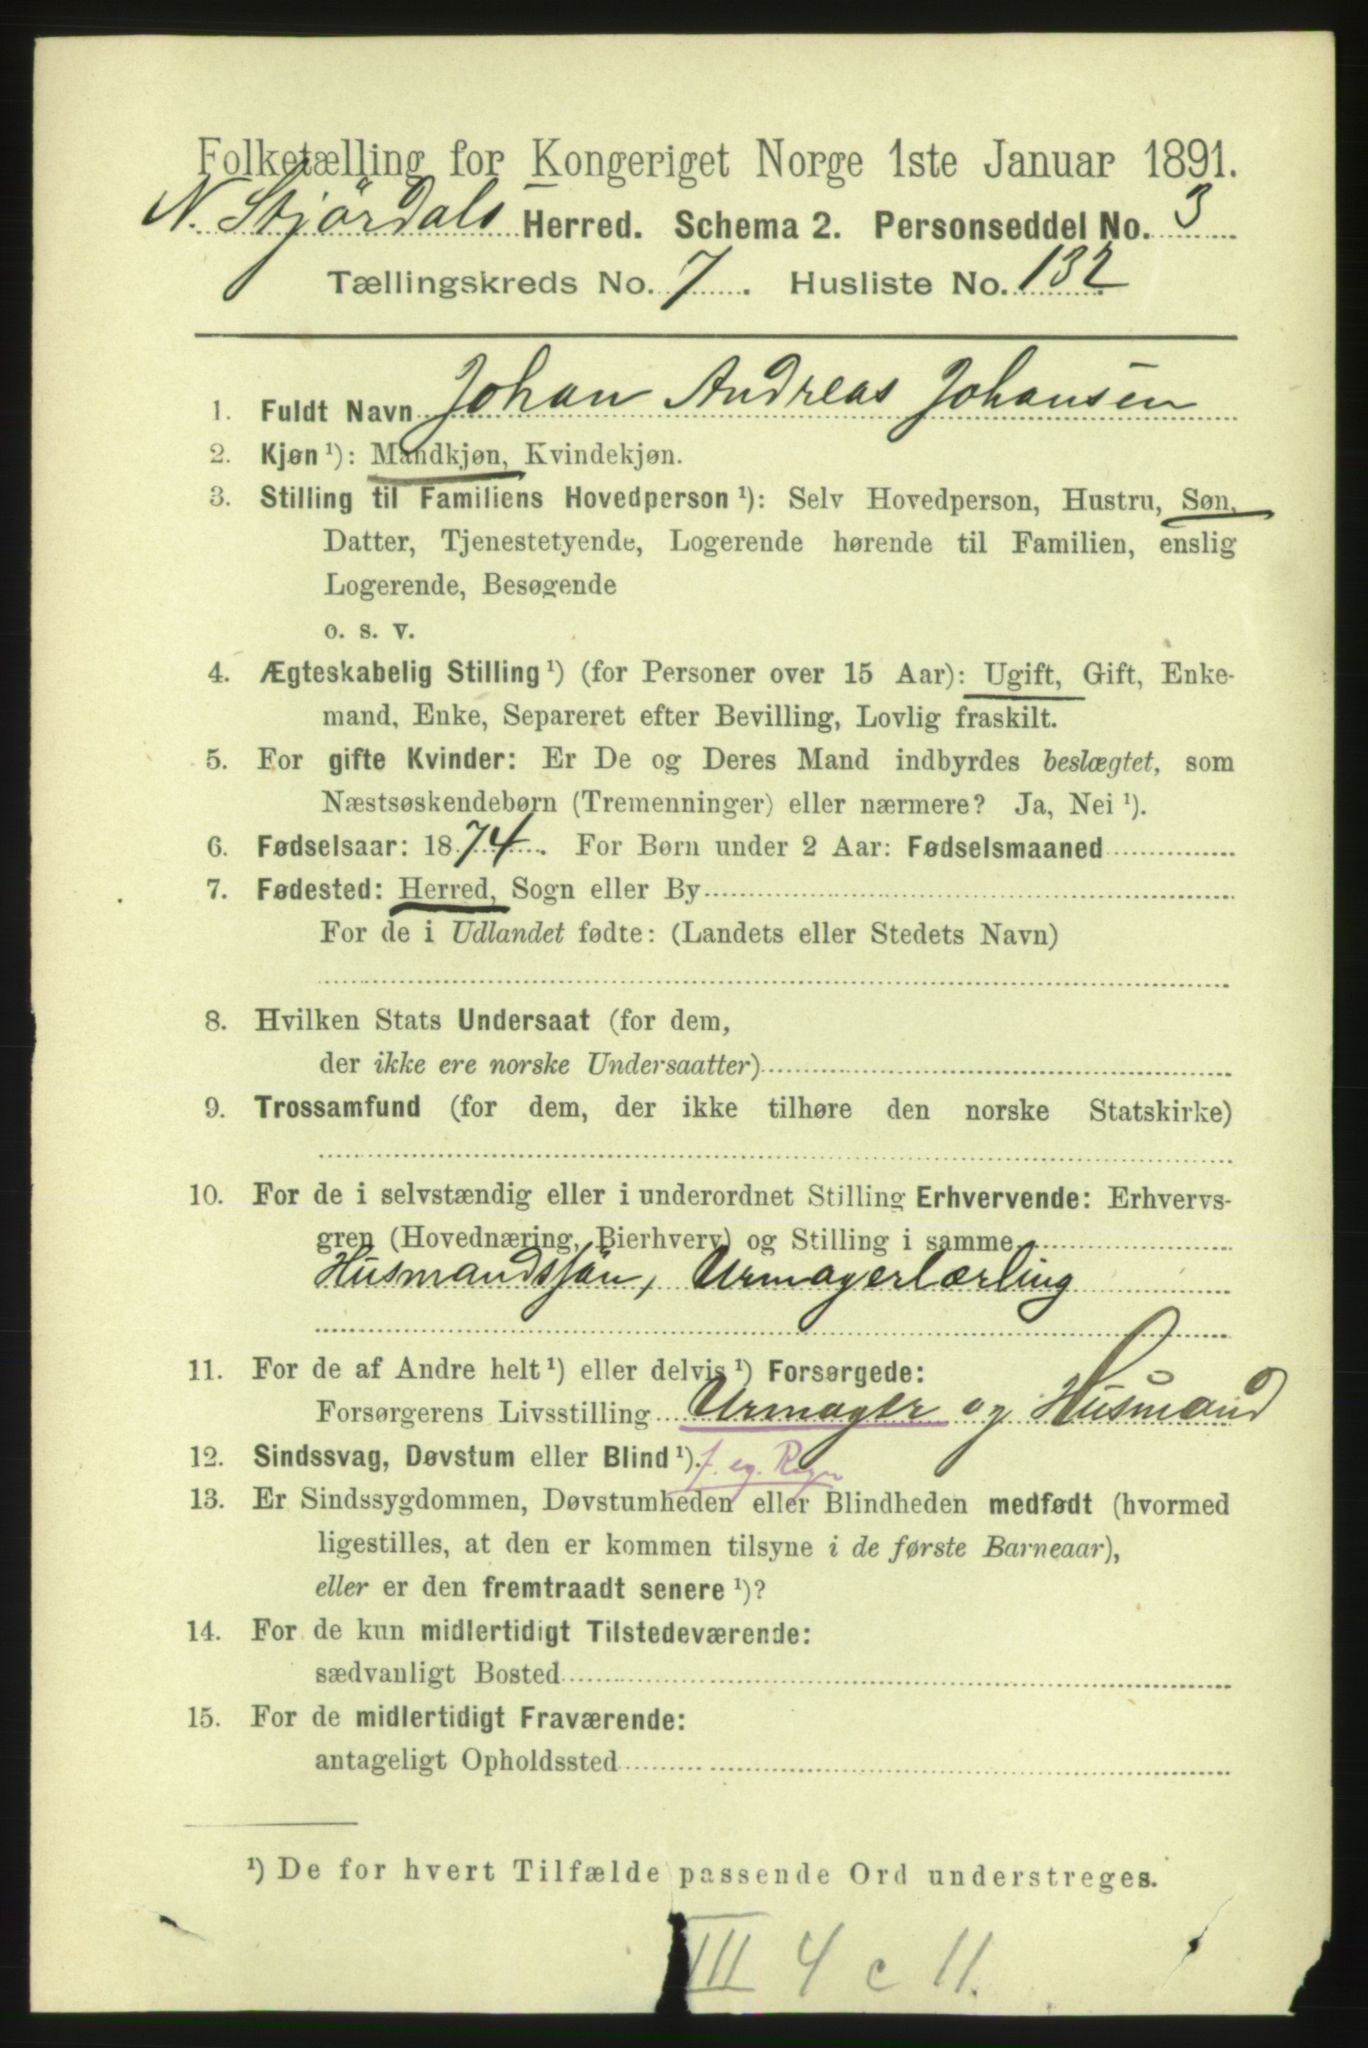 Folketælling for Kongeriget Norge 1ste Januar 1891.
N. Stjördals Herred. Schema 2. Personseddel No. 3
Tællingskreds No. 7. Husliste No. 132
1. Fuldt Navn Johan Andreas Johansen
2. Kjøn ¹): Mandkjøn, Kvindekjøn.
3. Stilling til Familiens Hovedperson ¹): Selv Hovedperson, Hustru, Søn,
Datter, Tjenestetyende, Logerende hørende til Familien, enslig
Logerende, Besøgende
o. s. v.
4. Ægteskabelig Stilling ¹) (for Personer over 15 Aar): Ugift, Gift, Enke-
mand, Enke, Separeret efter Bevilling, Lovlig fraskilt.
5. For gifte Kvinder: Er De og Deres Mand indbyrdes beslægtet, som
Næstsøskendebørn (Tremenninger) eller nærmere? Ja, Nei ¹).
6. Fødselsaar: 1874. For Børn under 2 Aar: Fødselsmaaned
7. Fødested: Herred, Sogn eller By
For de i Udlandet fødte: (Landets eller Stedets Navn)
8. Hvilken Stats Undersaat (for dem,
der ikke ere norske Undersaatter)
9. Trossamfund (for dem, der ikke tilhøre den norske Statskirke)
10. For de i selvstændig eller i underordnet Stilling Erhvervende: Erhvervs-
gren (Hovednæring, Bierhverv) og Stilling i samme
Husmandssön, Urmagerlærling
11. For de af Andre helt ¹) eller delvis ¹) Forsørgede:
Forsørgerens Livsstilling Urmager og Husmand
12. Sindssvag, Døvstum eller Blind ¹). f. eg. Regn
13. Er Sindssygdommen, Døvstumheden eller Blindheden medfødt (hvormed
ligestilles, at den er kommen tilsyne i de første Barneaar),
eller er den fremtraadt senere ¹)?
14. For de kun midlertidigt Tilstedeværende:
sædvanligt Bosted
15. For de midlertidigt Fraværende:
antageligt Opholdssted
¹) De for hvert Tilfælde passende Ord understreges.
III 4 c 11.